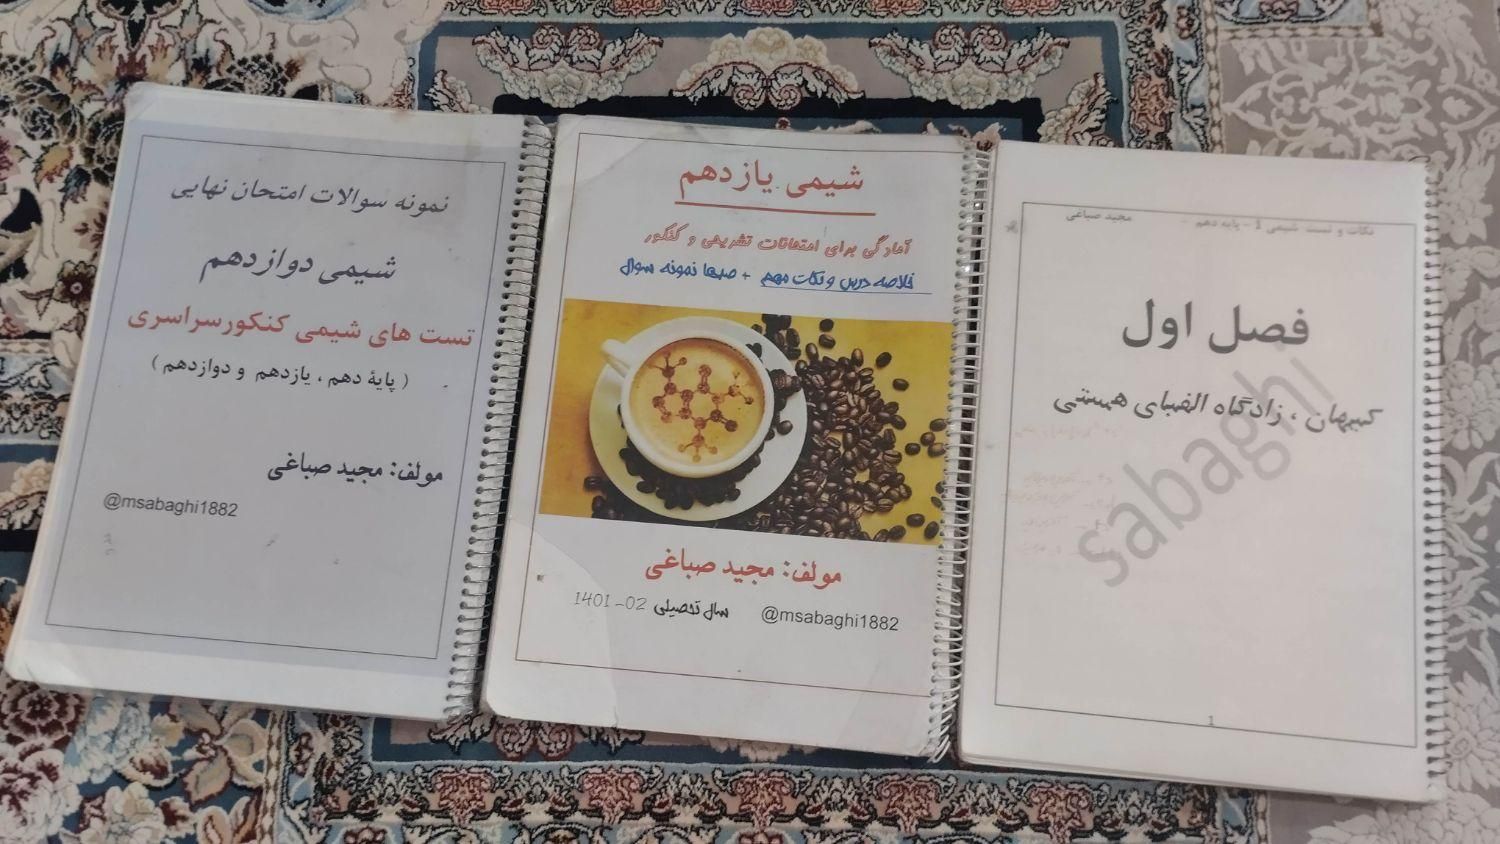 نمونه سوالات امتحان نهایی
شیمی دوازدهم
تست های شیمی کنکورسراسری
( پایهٔ دهم ، یازدهم و دوازدهم )
مولف: مجید صباغی
@msabaghi1882
شیمی یازدهم
آمادگی برای امتحانات تشریحی و کنکور
خلاصه درس و نکات مهم + صدها نمونه سوال
مولف: مجید صباغی
سال تحصیلی 02-1401 @msabaghi1882
نکات و تست شیمی 1 - پایه دهم - مجید صباغی
فصل اول
کیهان ، زادگاه الفبای هستی
sabaghi
1